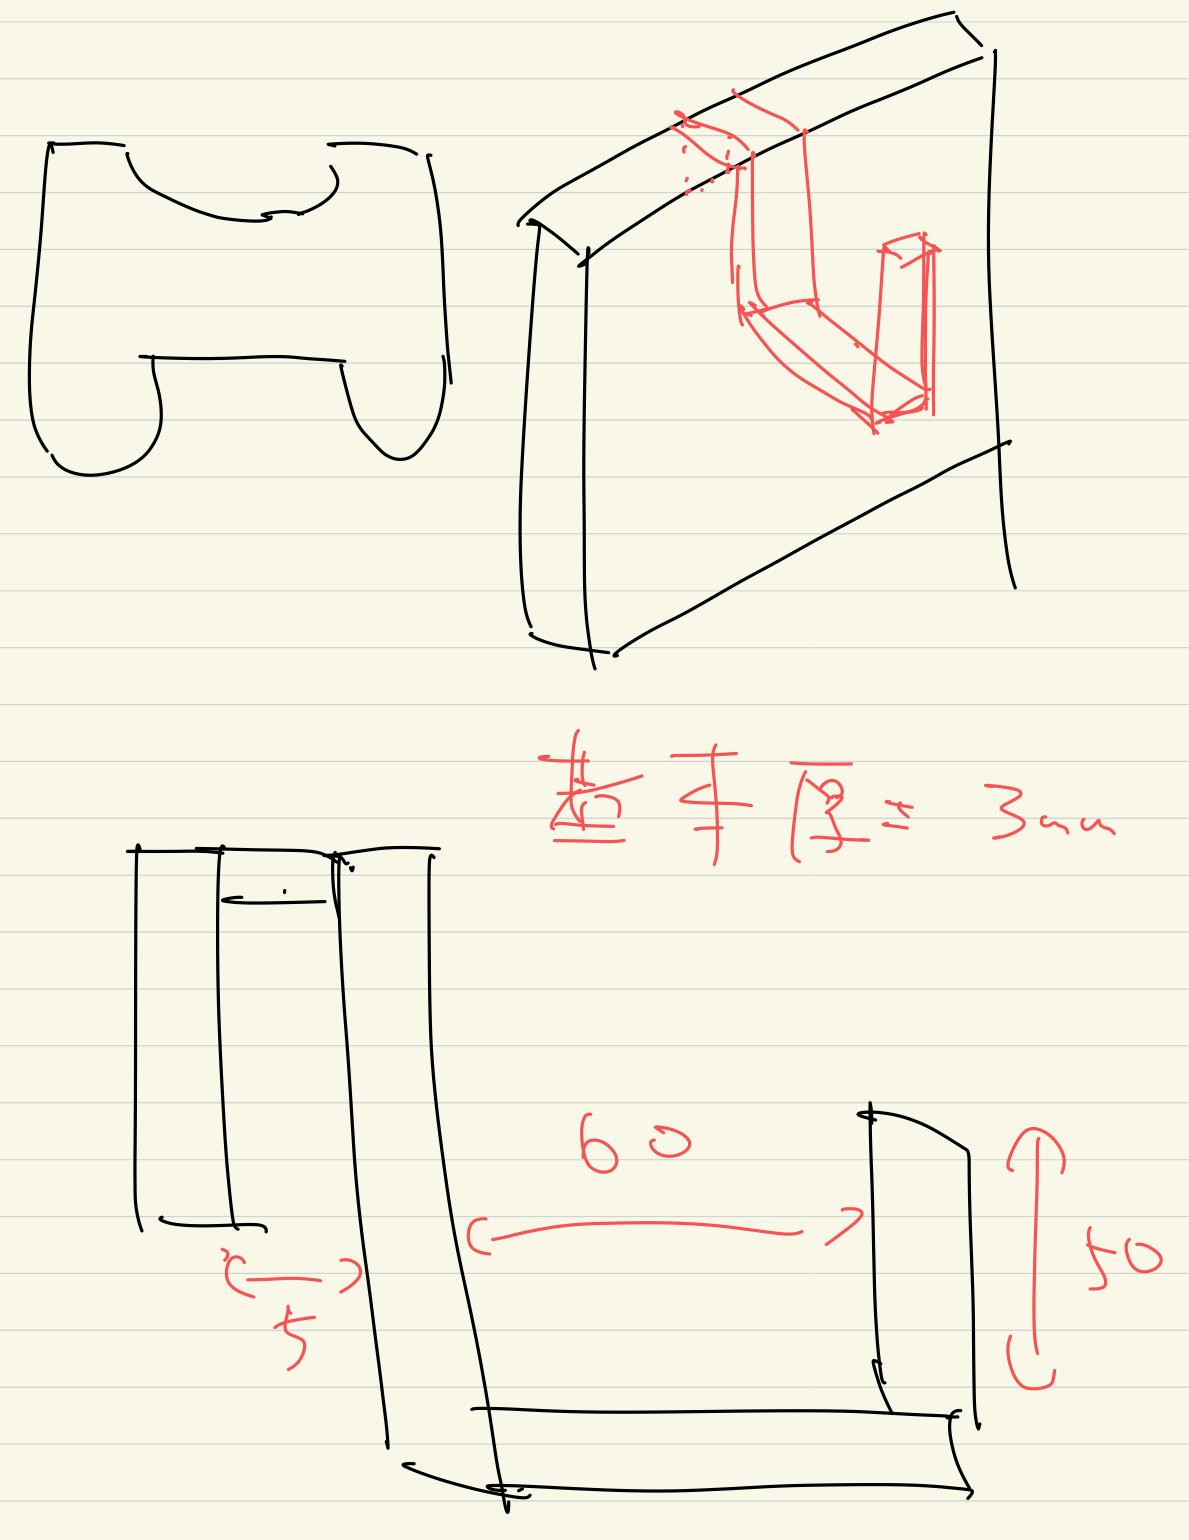 厚 = 3mm
60
50
5